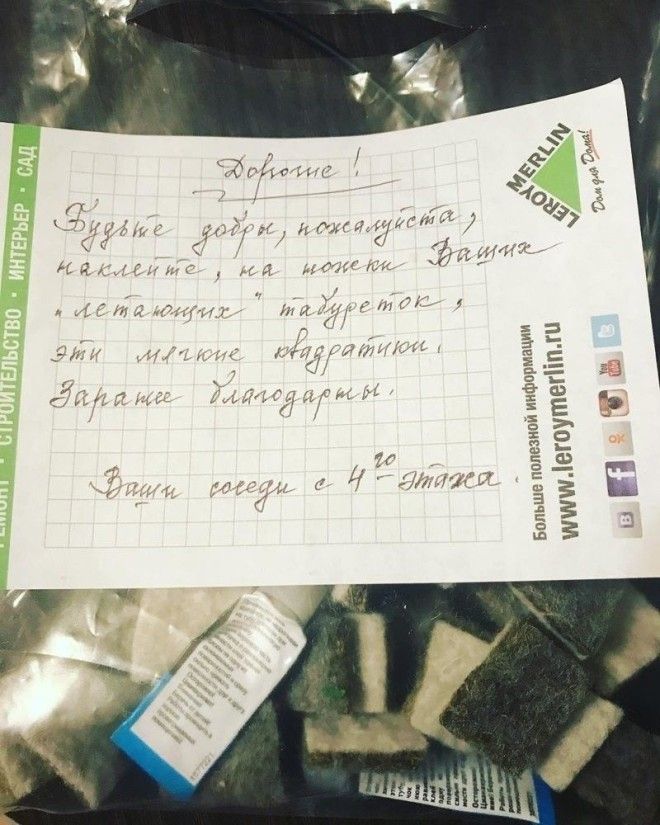 Дорогие!
Будьте добры, пожалуйста,
наклейте, на ножки Ваших
"летающих" табуреток,
эти мягкие квадратики.
Заранее благодарны.
Ваши соседи с 4го этажа.
LEROY MERLIN
Дом для Дома!
СТРОИТЕЛЬСТВО · ИНТЕРЬЕР · САД
Больше полезной информации
www.leroymerlin.ru